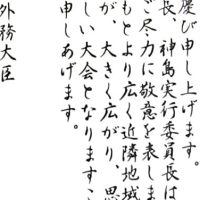 慶び申し上げます。
長、神島実行委員長は
ご尽力に敬意を表しま
もとより広く近隣地域
が、大きく広がり、思
しい大会となります
申しあげます。
外務大臣